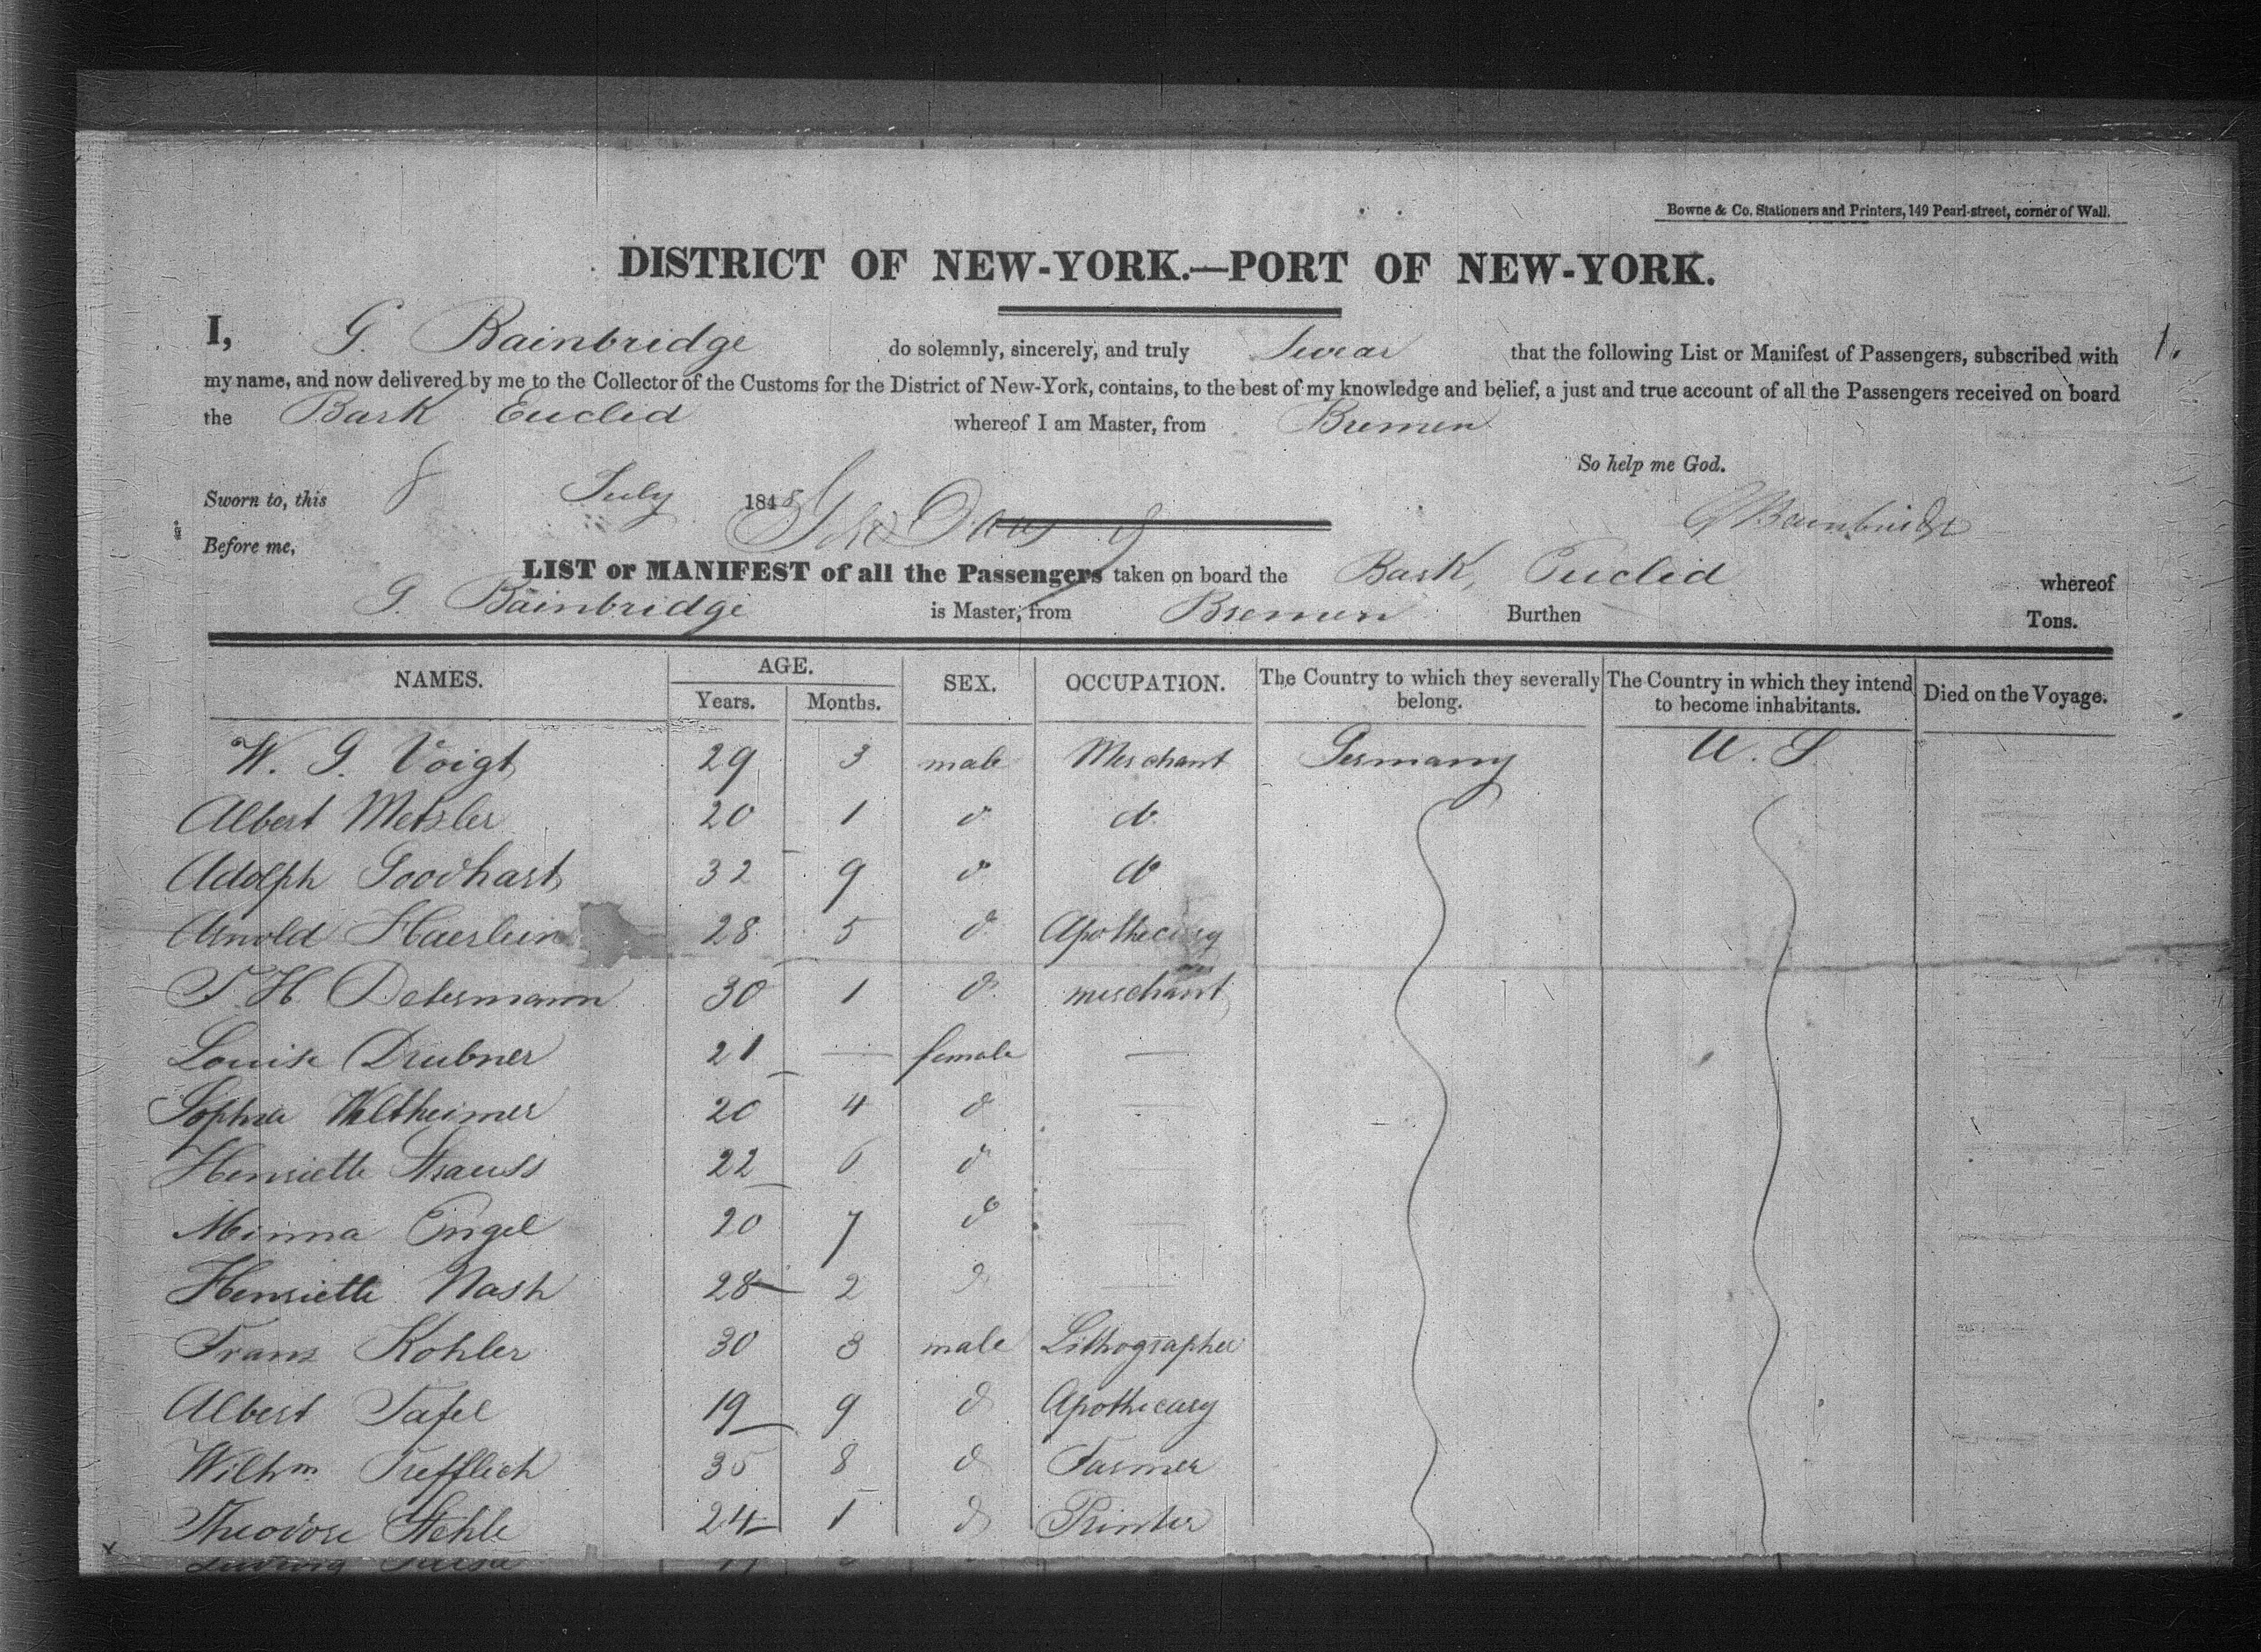 Bowne & Co. Stationers and Printers, 149 Pearl-street, corner of Wall.
DISTRICT OF NEW-YORK.—PORT OF NEW-YORK.
I, G. Bainbridge do solemnly, sincerely, and truly Swear that the following List or Manifest of Passengers, subscribed with 1.
my name, and now delivered by me to the Collector of the Customs for the District of New-York, contains, to the best of my knowledge and belief, a just and true account of all the Passengers received on board
the Bark Euclid whereof I am Master, from Bremen
So help me God.
Sworn to, this 8 July 1848
G Bainbridge
Before me,
LIST or MANIFEST of all the Passengers taken on board the Bark, Euclid whereof
G. Bainbridge is Master, from Bremen Burthen Tons.
NAMES. AGE. Years. Months. SEX. OCCUPATION. The Country to which they severally belong. The Country in which they intend to become inhabitants. Died on the Voyage.
W. G. Voigt 29 3 male Merchant Germany U. S.
Albert Metzler 20 1 do do
Adolph Goodhart 32 9 do do
Arnold Haerlein 28 5 do Apothecary
T. H. Determann 30 1 do merchant
Louise Drubner 21 — female —
Sophia Weltheimer 20 4 do —
Henriette Strauss 22 6 do
Minna Engel 20 7 do —
Henriette Nash 28 2 do —
Franz Kohler 30 3 male Lithographer
Albert Tafel 19 9 do Apothecary
Wilhm Trefflich 35 8 do Farmer
Theodore Stehle 24 1 do Printer
Ludwig